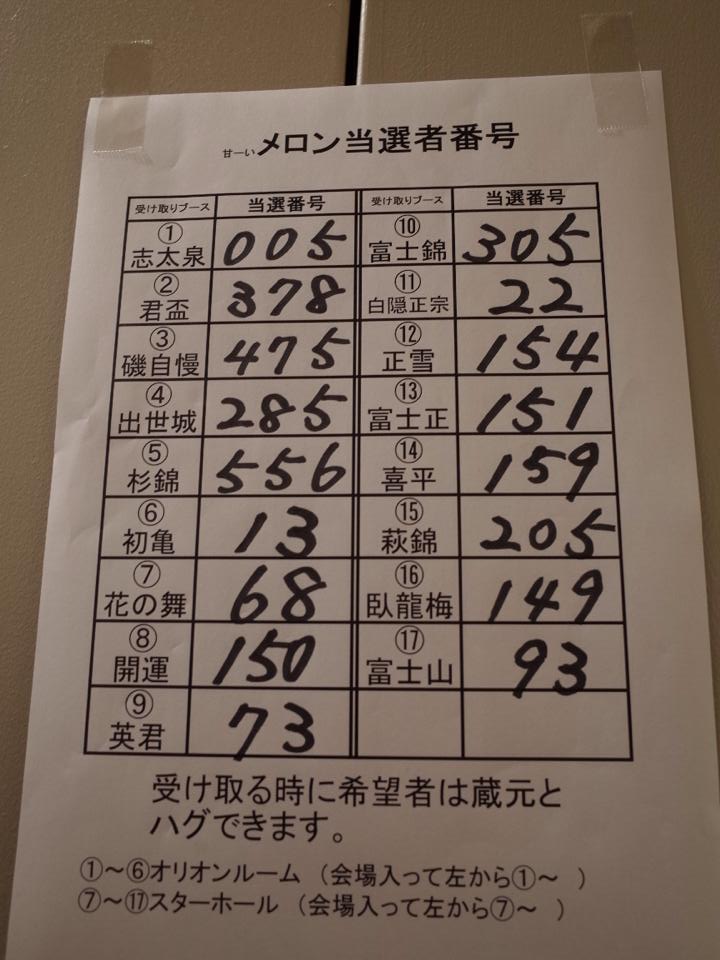 甘ーいメロン当選者番号
受け取りブース 当選番号 受け取りブース 当選番号
① 志太泉 005 ⑩ 富士錦 305
② 君盃 378 ⑪ 白隠正宗 22
③ 磯自慢 475 ⑫ 正雪 154
④ 出世城 285 ⑬ 富士正 151
⑤ 杉錦 556 ⑭ 喜平 159
⑥ 初亀 13 ⑮ 萩錦 205
⑦ 花の舞 68 ⑯ 臥龍梅 149
⑧ 開運 150 ⑰ 富士山 93
⑨ 英君 73
受け取る時に希望者は蔵元と
ハグできます。
①～⑥オリオンルーム （会場入って左から①～ ）
⑦～⑰スターホール （会場入って左から⑦～ ）